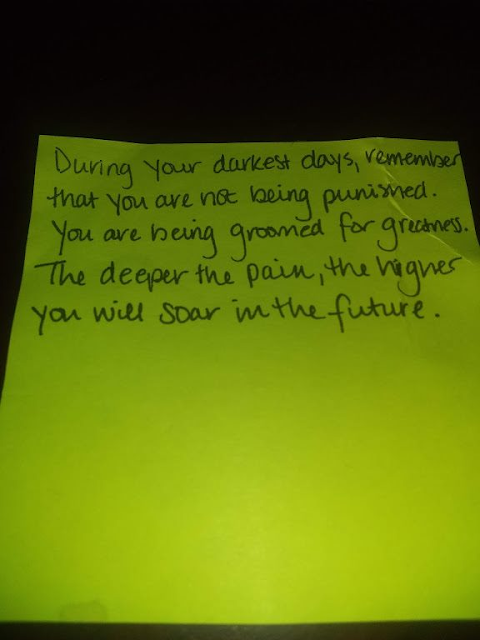 During your darkest days, remember
that you are not being punished.
You are being groomed for greatness.
The deeper the pain, the higher
you will soar in the future.